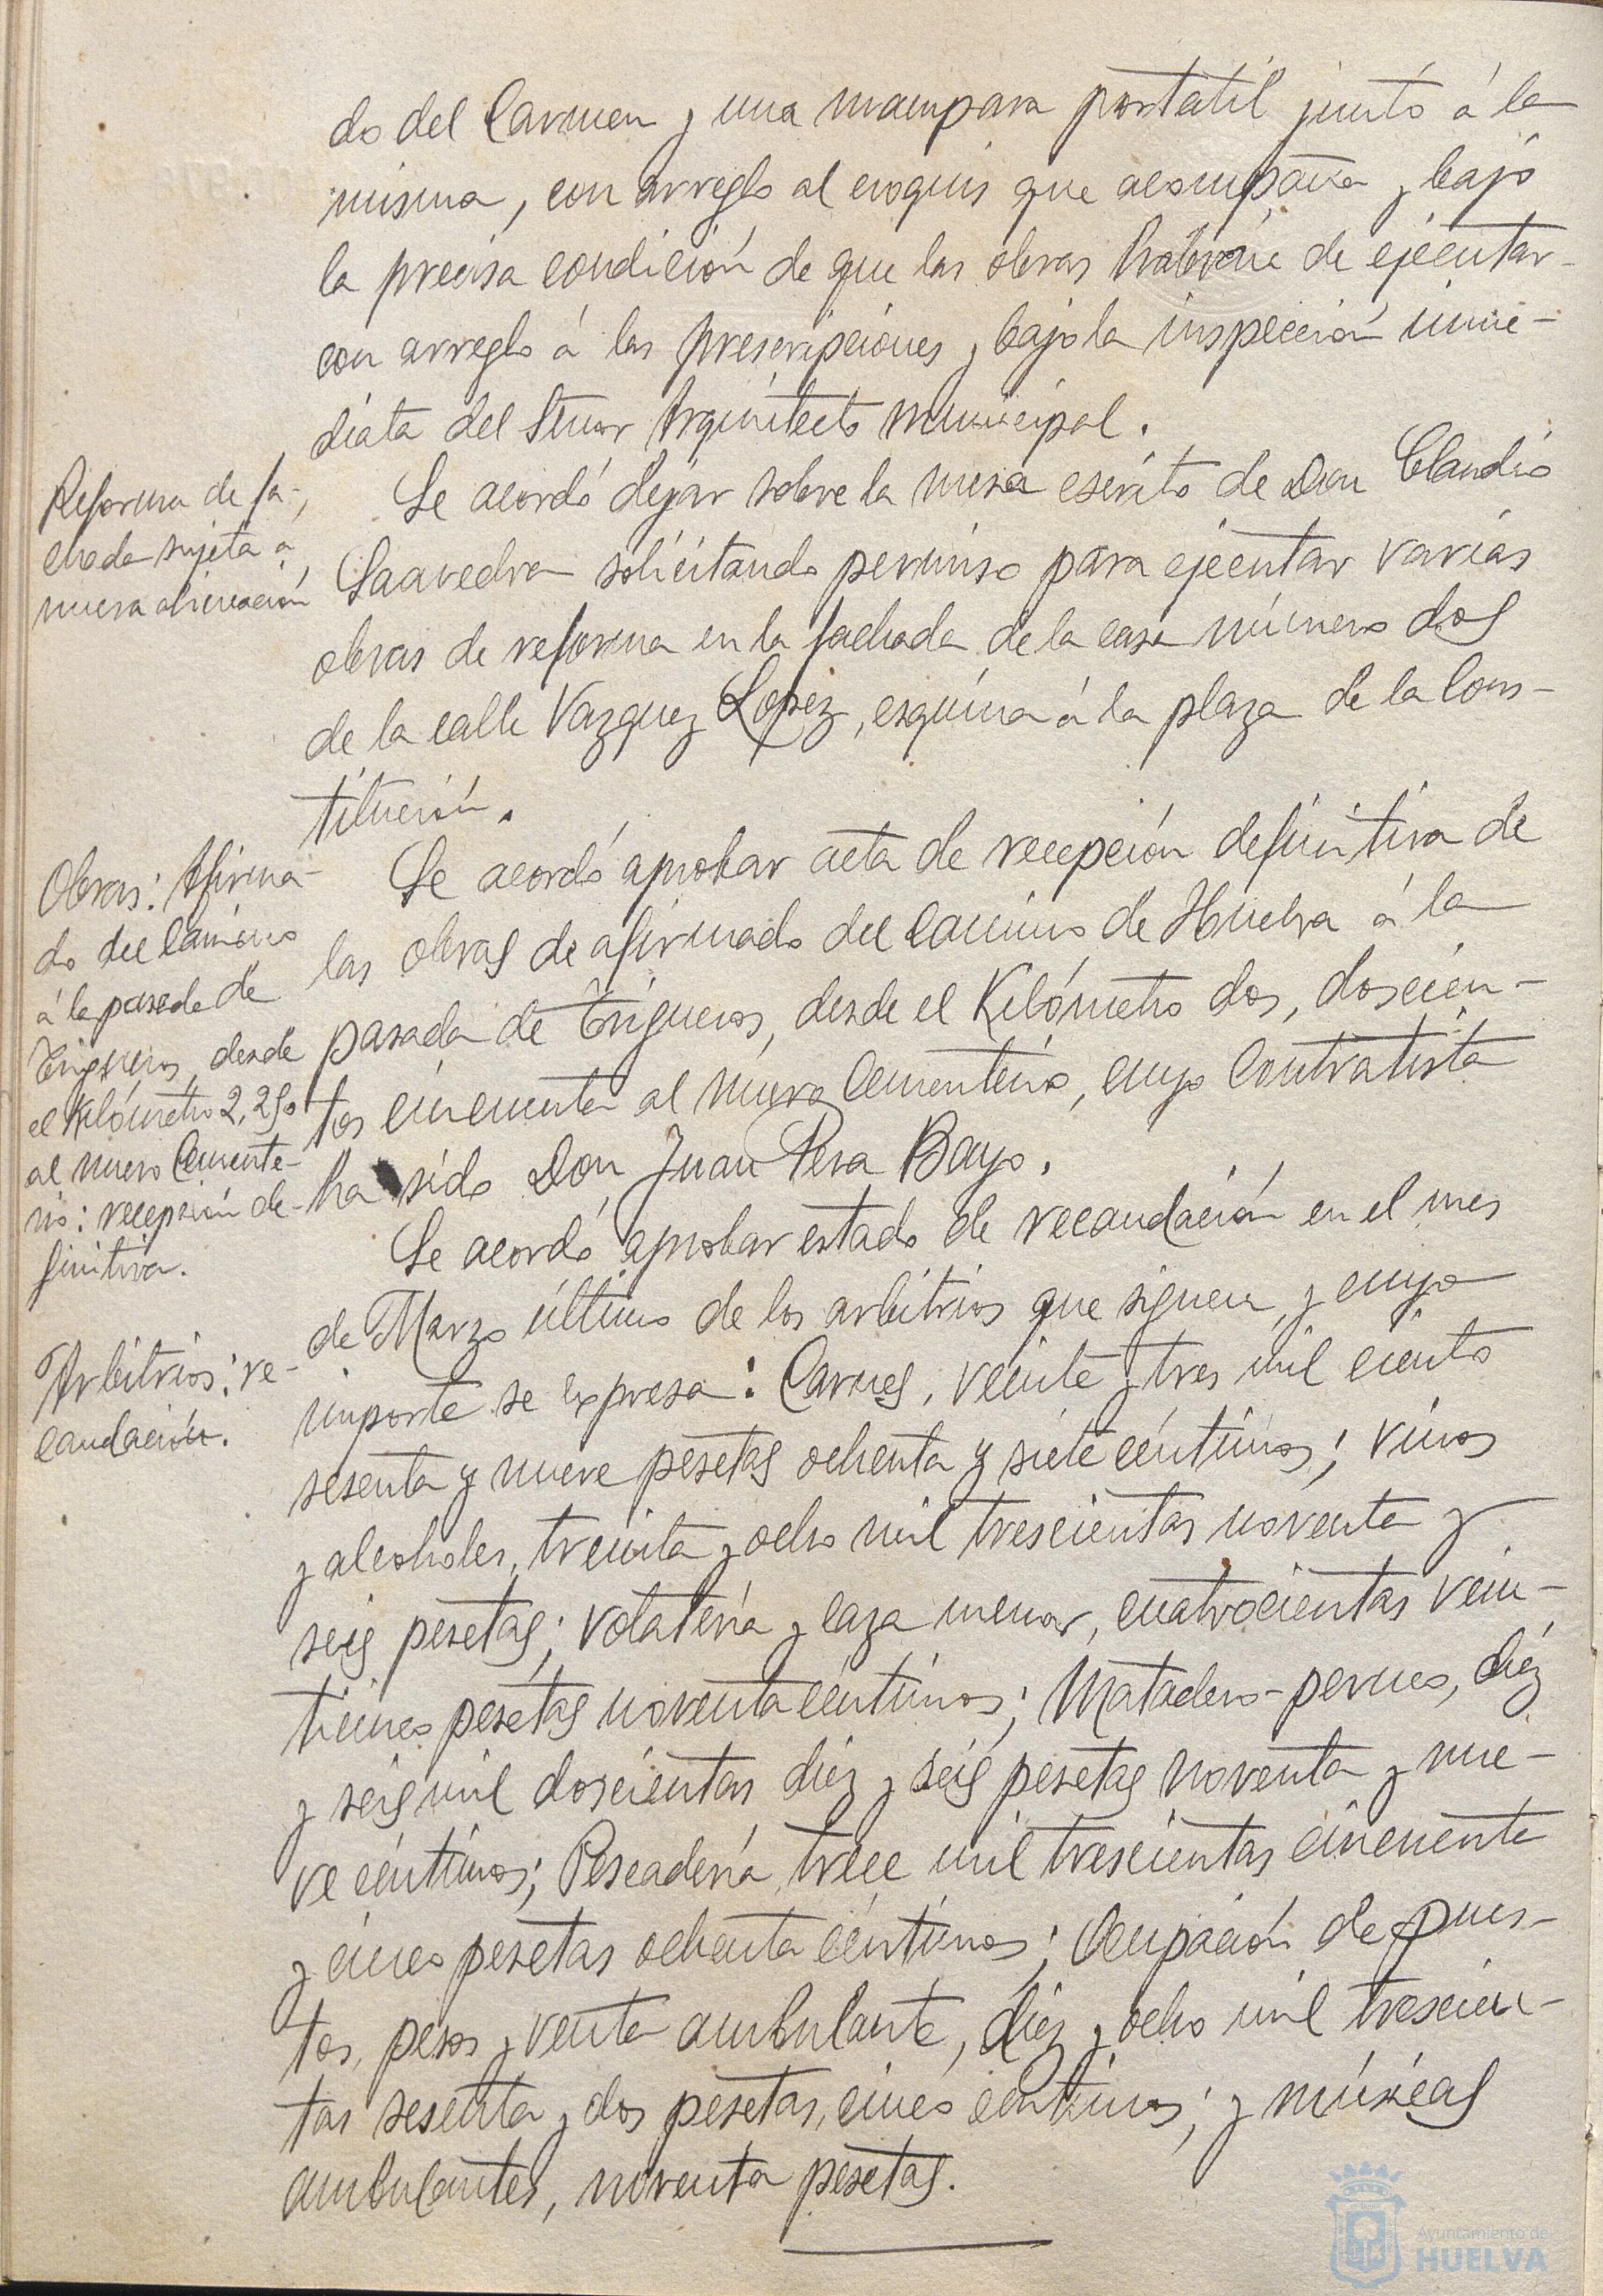 do del Carmen y una mampara portatil junto á la
misma, con arreglo al croquis que acompaña y bajo
la precisa condición de que las obras habrán de ejecutar-
con arreglo á las prescripciones y bajo la inspección inme-
diata del Señor Arquitecto municipal.
Reforma de fa-
chada sujeta á
nueva alineación
Se acordó dejar sobre la mesa escrito de Don Claudio
Saavedra solicitando permiso para ejecutar varias
obras de reforma en la fachada de la casa número dos
de la calle Vazquez Lopez, esquina á la plaza de la Cons-
titución.
Obras: Afirma-
do del Camino
á la pasada de
Trigueros, desde
el Kilómetro 2,250
al nuevo Cemente-
rio: recepción de-
finitiva.
Se acordó aprobar acta de recepción definitiva de
las obras de afirmado del Camino de Huelva á la
pasada de Trigueros, desde el Kilómetro dos, doscien-
tos cincuenta al nuevo Cementerio, cuyo Contratista
ha sido Don Juan Pera Bayo.
Arbitrios: re-
caudación.
Se acordó aprobar estado de recaudación en el mes
de Marzo último de los arbitrios que siguen, y cuyo
importe se expresa: Carnes, veinte y tres mil ciento
sesenta y nueve pesetas ochenta y siete céntimos; vinos
y alcoholes, treinta y ocho mil trescientas noventa y
seis pesetas; volatería y caza menor, cuatrocientas vein-
ticinco pesetas noventa céntimos; Matadero-perneo, diez
y seis mil doscientas diez y seis pesetas noventa y nue-
ve céntimos; Pescadería, trece mil trescientas cincuenta
y cinco pesetas ochenta céntimos; Ocupación de pues-
tos, pesos y venta ambulante, diez y ocho mil trescien-
tas sesenta y dos pesetas, cinco céntimos; y músicas
ambulantes, noventa pesetas.
Ayuntamiento de
HUELVA